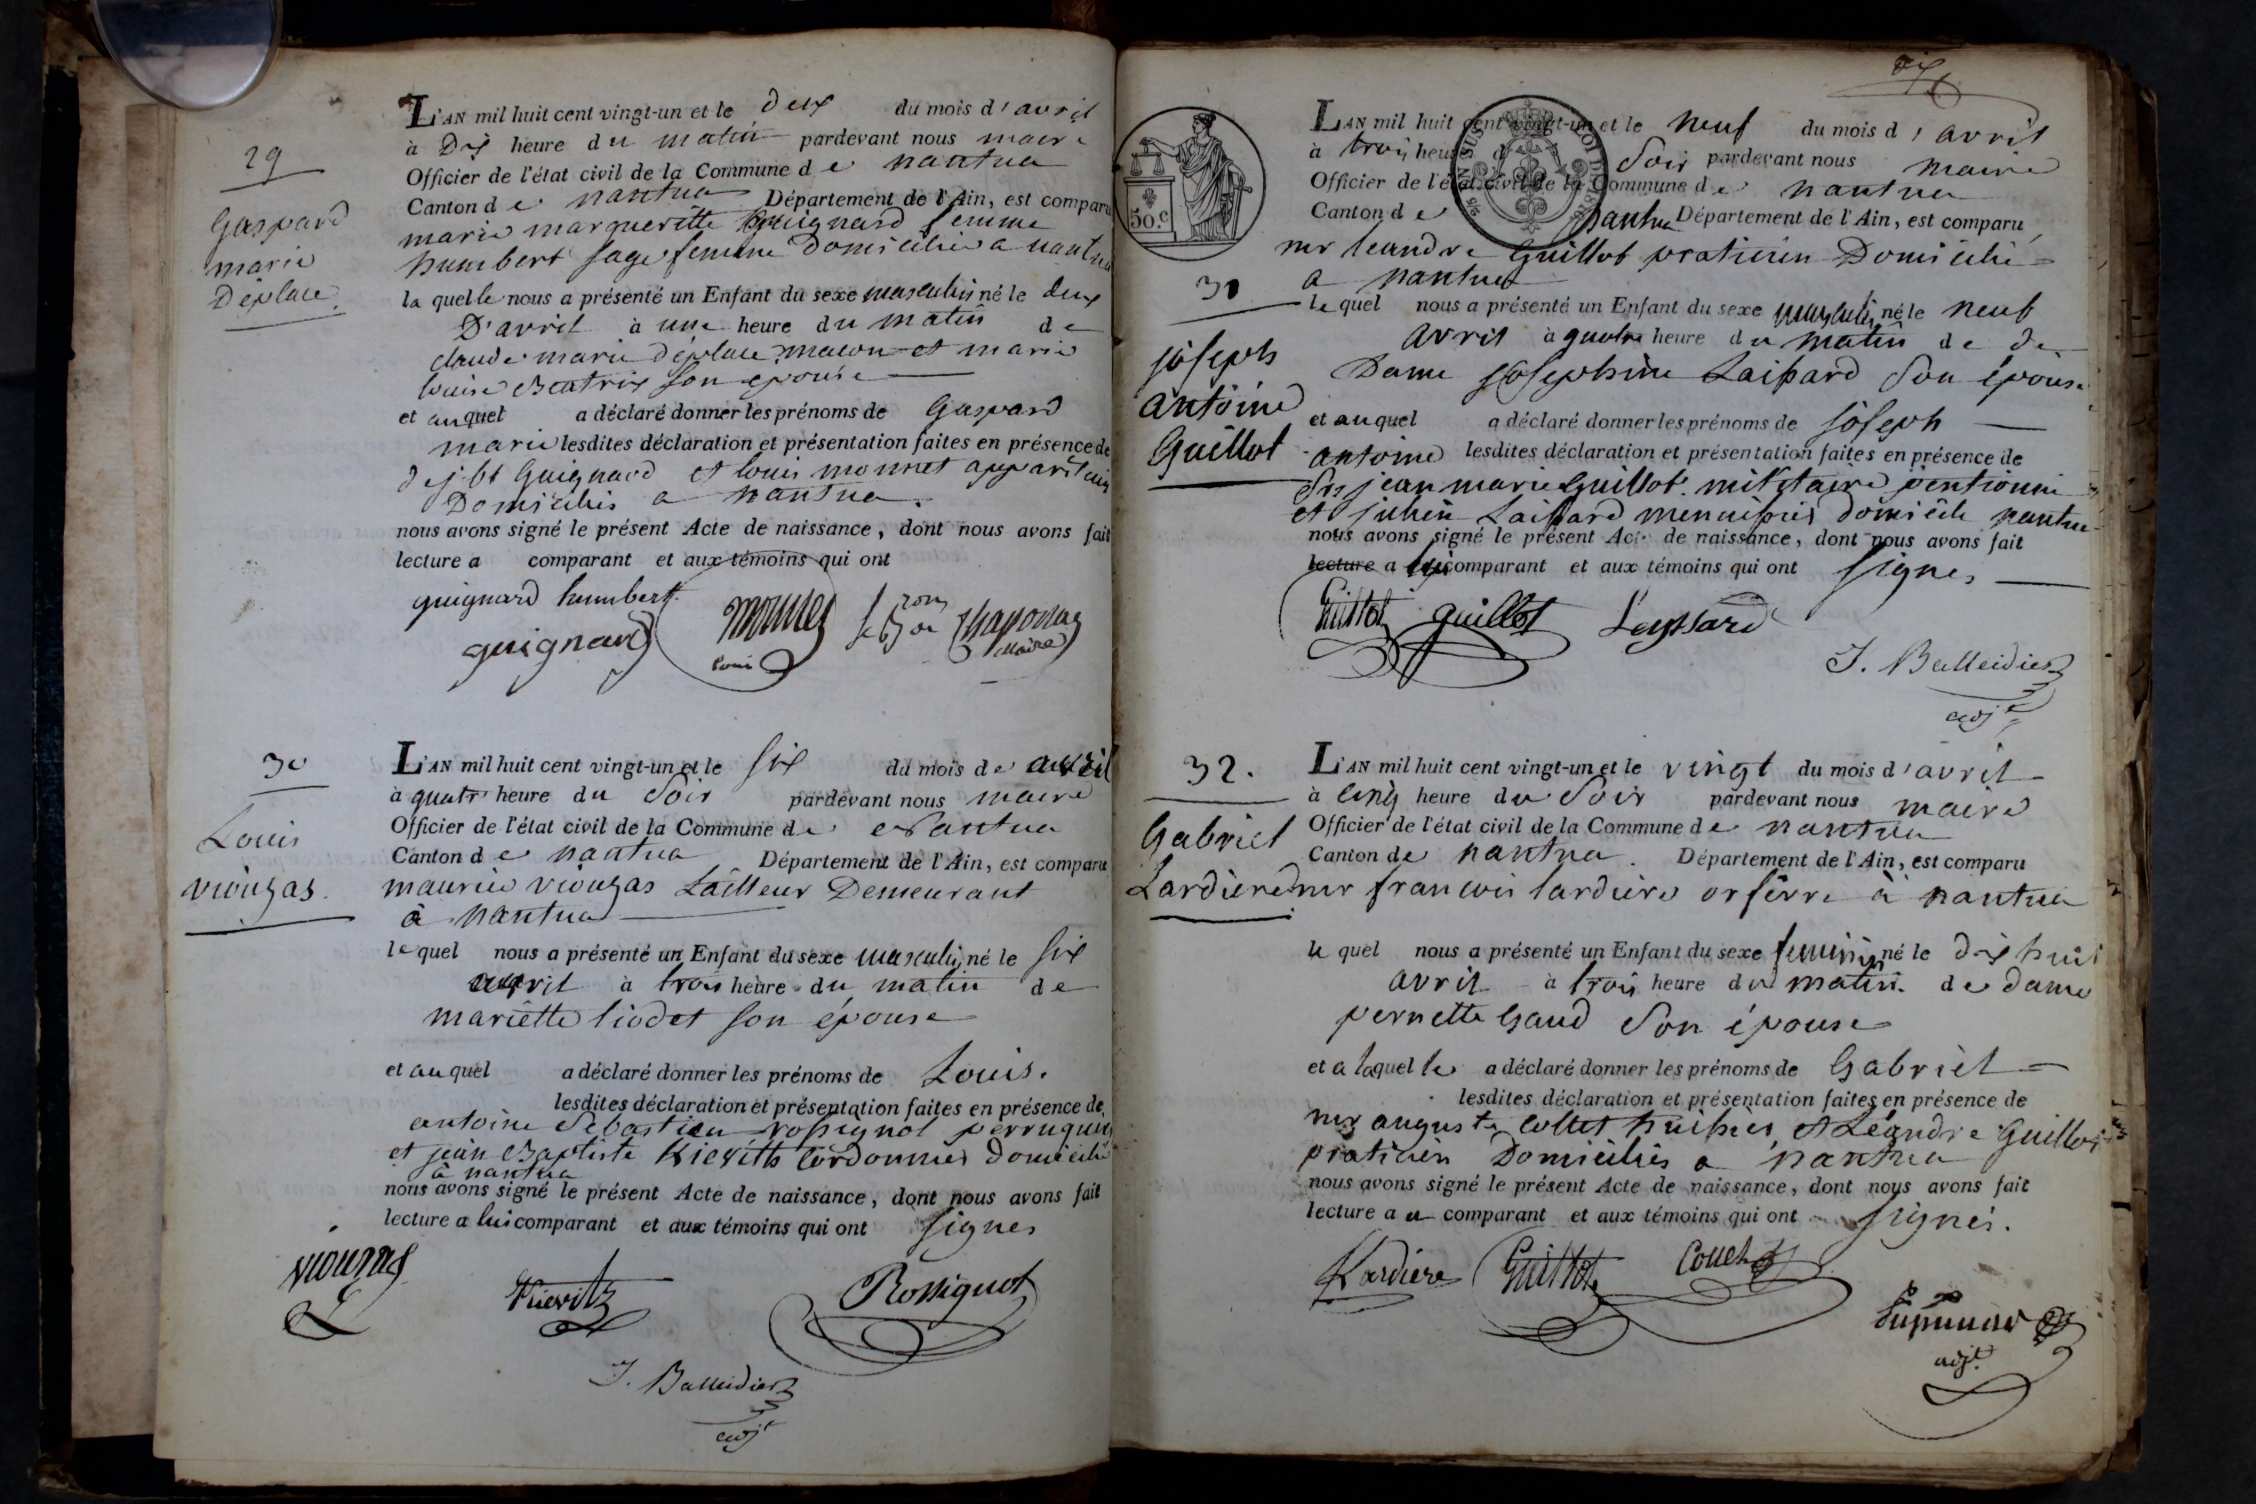 29
Gaspard
marie
Déplace
L'AN mil huit cent vingt-un et le deux du mois d'avril
à Dix heure du matin pardevant nous maire
Officier de l'état civil de la Commune de nantua
Canton de nantua Département de l'Ain, est comparu
marie margueritte Guignard femme
humbert sage femme domiciliée a nantua
la quelle nous a présenté un Enfant du sexe masculin né le deux
D'avril à une heure du matin de
claude marie déplace macon et marie
louise Beatrix son épouse
et au quel a déclaré donner les prénoms de Gaspard
marie lesdites déclaration et présentation faites en présence de
de j. bt Guignard et louis monnet
Domiciliés a nantua
nous avons signé le présent Acte de naissance, dont nous avons fait
lecture a comparant et aux témoins qui ont
guignard humbert
guignard
monnet
louis
Maire
30
Louis
viouzas.
L'AN mil huit cent vingt-un et le six du mois de avril
à quatr heure du Soir pardevant nous maire
Officier de l'état civil de la Commune de Nantua
Canton de nantua Département de l'Ain, est comparu
maurice viouzas tailleur Demeurant
à nantua
le quel nous a présenté un Enfant du sexe masculin né le six
avril à trois heure du matin de
mariette liodet son épouse
et au quel a déclaré donner les prénoms de Louis.
lesdites déclaration et présentation faites en présence de
antoine Sébastien rossignol perruquier
et jean Baptiste Kievith Cordonnier domicilié
à nantua
nous avons signé le présent Acte de naissance, dont nous avons fait
lecture a lui comparant et aux témoins qui ont signes
viouzas
Kievitz
Rossignol
J. Balleidier
adjt
50.c
31
joseph
antoine
Guillot
L'AN mil huit cent vingt-un et le neuf du mois d'avril
à trois heure d Soir pardevant nous maire
Officier de l'état civil de la Commune de nantua
Canton de nantua Département de l'Ain, est comparu
mr leandre Guillot praticien Domicilié
a nantua
le quel nous a présenté un Enfant du sexe masculin né le neuf
avril à quatre heure du matin de de
Dame josephine Laissard Son épouse
et au quel a déclaré donner les prénoms de joseph
antoine lesdites déclaration et présentation faites en présence de
Srs jean marie Guillot militaire pentionné
et julien Laissard menuisier domicile nantua
nous avons signé le présent Acte de naissance, dont nous avons fait
lecture a lui comparant et aux témoins qui ont signes
Guillot guillot Leyssard
J. Balleidier
adjt
32.
Gabriel
Lardiere
L'AN mil huit cent vingt-un et le vingt du mois d'avril
à cinq heure du Soir pardevant nous maire
Officier de l'état civil de la Commune de nantua
Canton de nantua. Département de l'Ain, est comparu
mr francois lardiere orfèvre à nantua
le quel nous a présenté un Enfant du sexe feminin né le dix huit
avril à trois heure du matin de dame
pernette Gaud Son épouse
et a laquelle a déclaré donner les prénoms de Gabriel
lesdites déclaration et présentation faites en présence de
mr auguste collet huissier et Léandre Guillot
praticien Domiciliés a nantua
nous avons signé le présent Acte de naissance, dont nous avons fait
lecture a u comparant et aux témoins qui ont signés.
Lardiere Guillot
adjt.